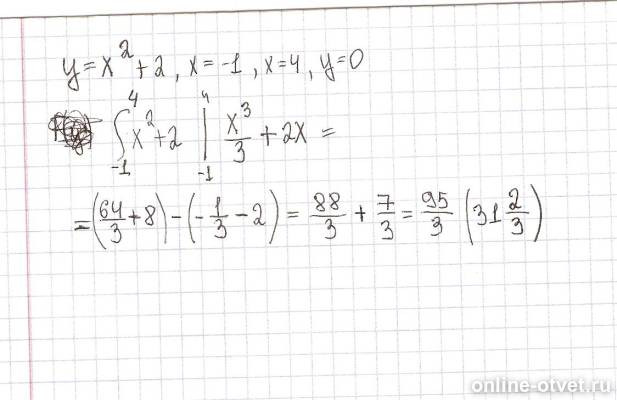 y=x²+2, x=-1, x=4, y=0
∫₋₁⁴ x²+2 |₋₁⁴ x³/3 + 2x =
= (64/3 + 8) - (-1/3 - 2) = 88/3 + 7/3 = 95/3 (31 2/3)
online-otvet.ru